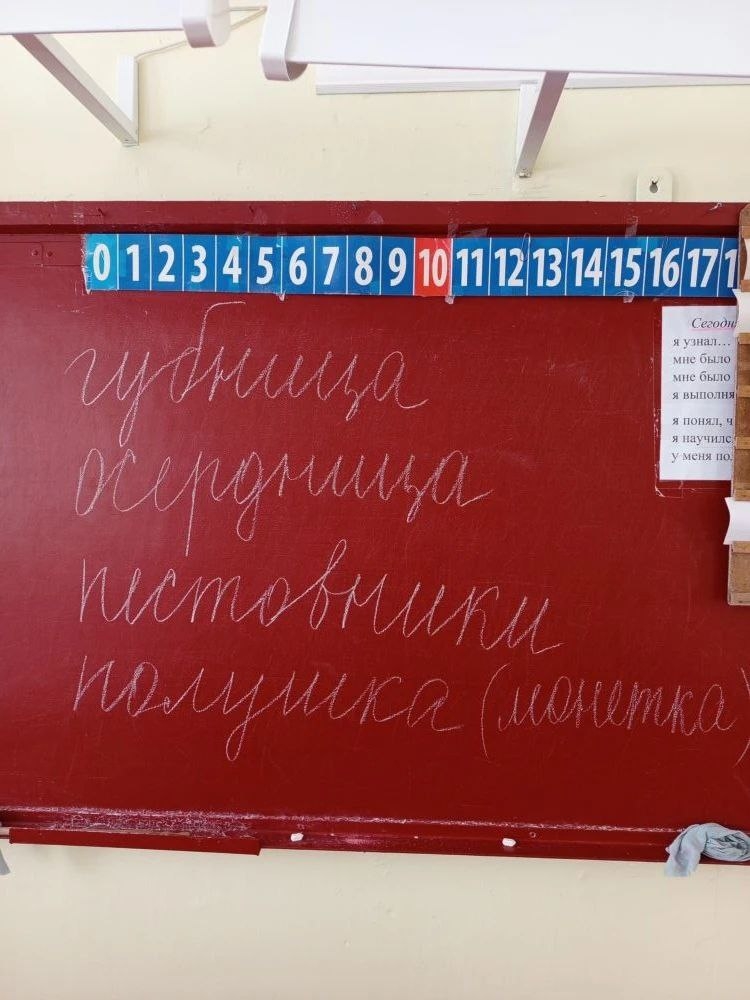 0 1 2 3 4 5 6 7 8 9 10 11 12 13 14 15 16 17 1
Сегодн
я узнал...
мне было
мне было
я выполня
я понял, ч
я научилс
у меня по
губница
осердница
пестовники
полушка (монетка)